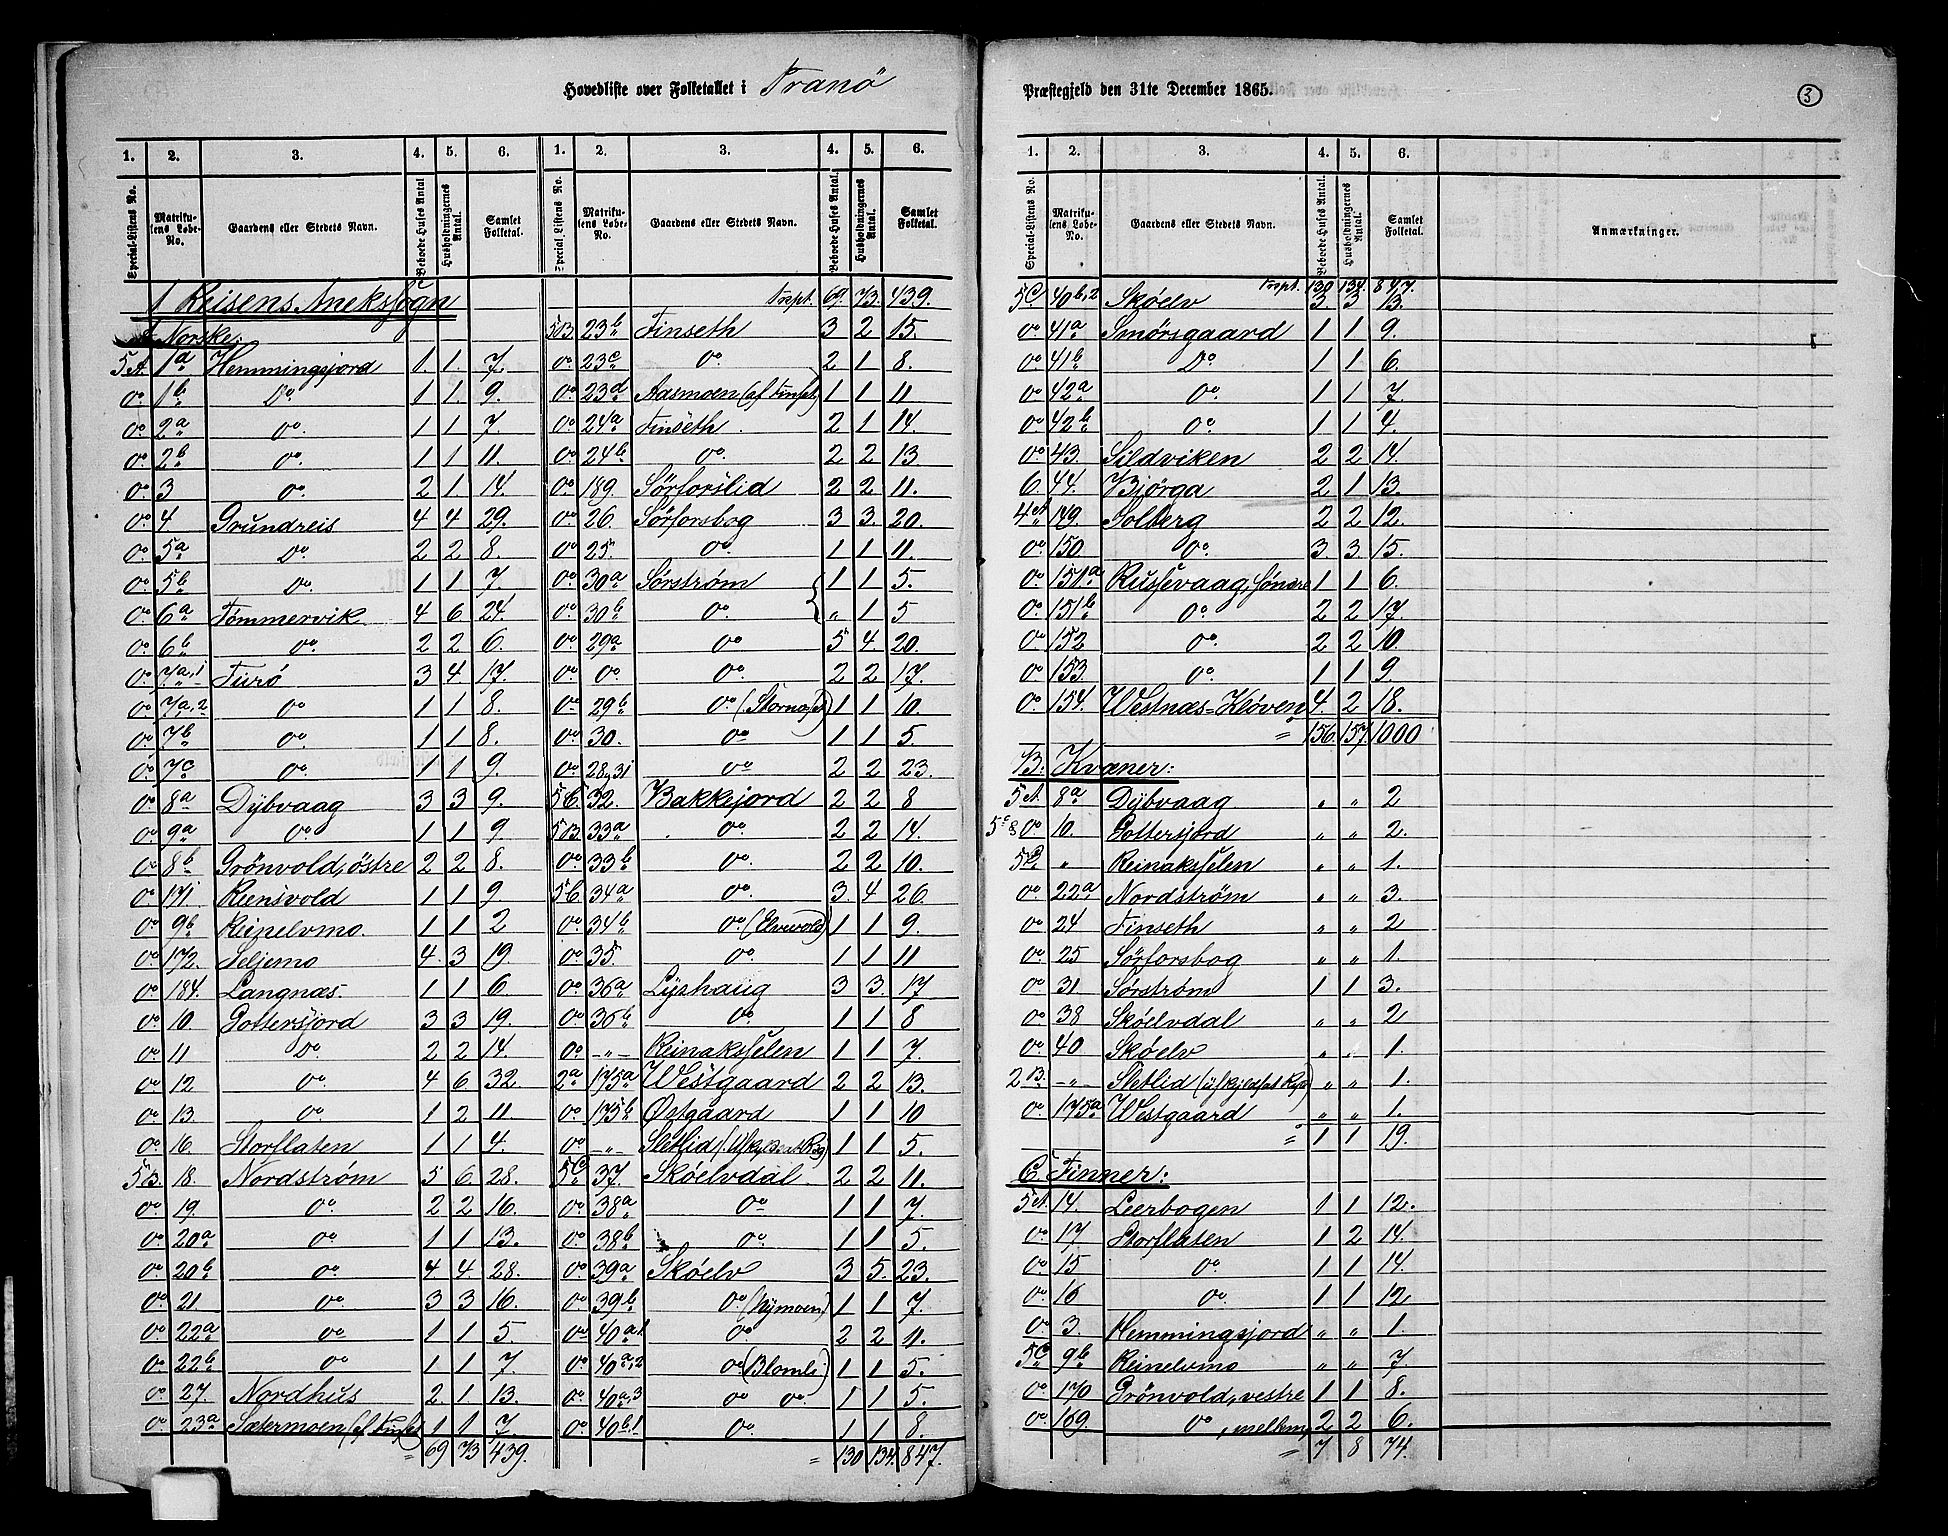 Hovedliste over Folketallet i Tranö Præstegjeld den 31te December 1865. 3
1. 2. 3. 4. 5. 6. 1. 2. 3. 4. 5. 6.
Special-Listens No. Matrikulens Løbe-No. Gaardens eller Stedets Navn. Beboede Huses Antal Husholdningernes Antal. Samlet Folketal. Special-Listens No. Matrikulens Løbe-No. Gaardens eller Stedets Navn. Beboede Huses Antal. Husholdningernes Antal. Samlet Folketal.
1 Reisens Anekssogn
Norske:
5A. 1a Hemmingsjord 1. 1. 7.
do. 1b Do. 1 1. 9.
do. 2a do. 1 1 7
do. 2b do. 1 1 11.
do. 3 do. 2 1 14.
do. 4 Grundreis 4 4 29.
do. 5a Do. 2 2 8.
do. 5b do. 1 1 7
do. 6a Tømmervik 4 6 24
do. 6b do. 2 2 6.
do. 7a,1 Furö 3 4 17.
do. 7a,2 do. 1 1 8.
do. 7b do. 1 1 8.
do. 7c do. 1 1 9.
do. 8a Dybvaag 3 3 9.
do. 9a do. 1 1 9
do. 8b Grönvold, östre 2 2 8.
do. 171. Reensvold 1 1 9
do. 9b Reinelvmo. 1 1 2
do. 172. Seljemo 4. 3 19.
do. 184. Langnæs. 1 1 6
do. 10. Gottersjord 3 3 19.
do. 11 Do. 2 2 14.
do. 12. do. 4 6 32.
do. 13 do. 1 2 11
do. 16. Storflaten 1 1 4.
5B. 18. Nordstrøm 5 6 28.
do. 19. do. 2 2 16.
do. 20a do. 1 1 13.
do. 20b do. 4. 4. 28.
do. 21. do. 3 3 16.
do. 22a do 1 1 5.
do. 22b do 1 1 7.
do. 27. Nordhus 2. 1 13.
do. 23a Sætermoen (af Finset) 1 1 7.
= 69 73 439.
Transpt. 69. 73. 439.
5B. 23b Finseth 3 2 15.
do. 23c do. 2 1 8.
do. 23d Aasmoen (af Finset) 1 1 11
do. 24a Finseth. 2 1 14.
do. 24b do. 2 2 13.
do. 189. Sørforslid 2 2 11.
do. 26. Sørforsbog 3 3. 20.
do. 25. do. 1 1 11.
do. 30a Sørstrøm 1 1 5.
do. 30b do. " 1 5
do. 29a do 5 4. 20.
do. do. do. 2 2 17.
do. 29b do (Stornæset) 1 1 10.
do. 30. do 1 1 5.
do. 28,31 do 2 2 23.
5C. 32. Bakkejord 2 2 8
5B. 33a do. 2 2 14.
do. 33b do. 2 2 10.
5C. 34a do. 3 4 26.
do. 34b do (Elvevold) 1 1 9.
do. 35. do. 1 1 11
do. 36a Lyshaug 3 3. 17
do. 36b do. 1 1 8
do. -"- Reinakselen 1 1 7.
2a 175a Westgaard 2 2 13.
do. 175b Østgaard 1 1 10
do. -"- Sletlid 1 1 5.
5C 37. Skøelvdal 2 2 11.
do. 38a do 1 1 7.
do. 38b do. 1 1 5.
do. 39a Skøelv 3 5. 23.
do. 39b do (Nymoen) 1 1 7.
do. 40a1 do. 2 2 11.
do. 40a,2 do (Blomli) 1 1 5.
do. 40a,3 do do. 1 1 5.
do. 40b1 do. 1 1 8.
= 130 134. 847.
1. 2. 3. 4. 5. 6.
Special-Listens No. Matrikulens Løbe-No. Gaardens eller Stedets Navn. Beboede Huses Antal. Husholdningernes Antal. Samlet Folketal. Anmærkninger.
Trspt. 130 134. 847.
5C 40b,2 Skøelv 3 3 13.
do. 41a Smørsgaard 1 1 9.
do 41b Do 1 1 6.
do 42a do 1 1 7.
do 42b do. 1 1 4.
do 43. Sildviken 2 2 14.
6. 44. Bjørga 2 1 13.
4A 149. Solberg 2 2 12.
do 150. do. 3 3. 15.
do 151a Russevaag, søndre 1 1 6.
do 151b do. 2 2 17.
do 152 do. 2 2 10.
do 153. do. 1 1 9.
do 154. Westnæs=Kløven 4. 2 18.
= 156. 157. 1000
B: Kvæner:
5A. 8a Dybvaag " " 2
do 10. Gottersjord " " 2.
5C " Reinakselen " " 1.
do. 22a Nordstrøm " " 3.
do 24 Finseth " " 2
do 25 Sørforsbog " " 1.
do 31 Sørstrøm 1 1 3.
do 38 Skøelvdal " " 2
do 40 Skøelv " " 1.
2B. -"- Sletlid " " 1.
do 175a Westgaard " " 1.
= 1 1 19.
C. Finner:
5A 14. Leerbogen 1 1 12.
do 17 Storflaten 1 2 14.
do 15 do. 1 1 14
do 16 do. 1 1 12
do. 3. Hemmingsjord " " 1.
5C 9b Reinelvmo " " 7
do 170 Grönvold, vestre 1 1 8.
do. 169. do, mellem, 2 2 6.
= 7 8 74.